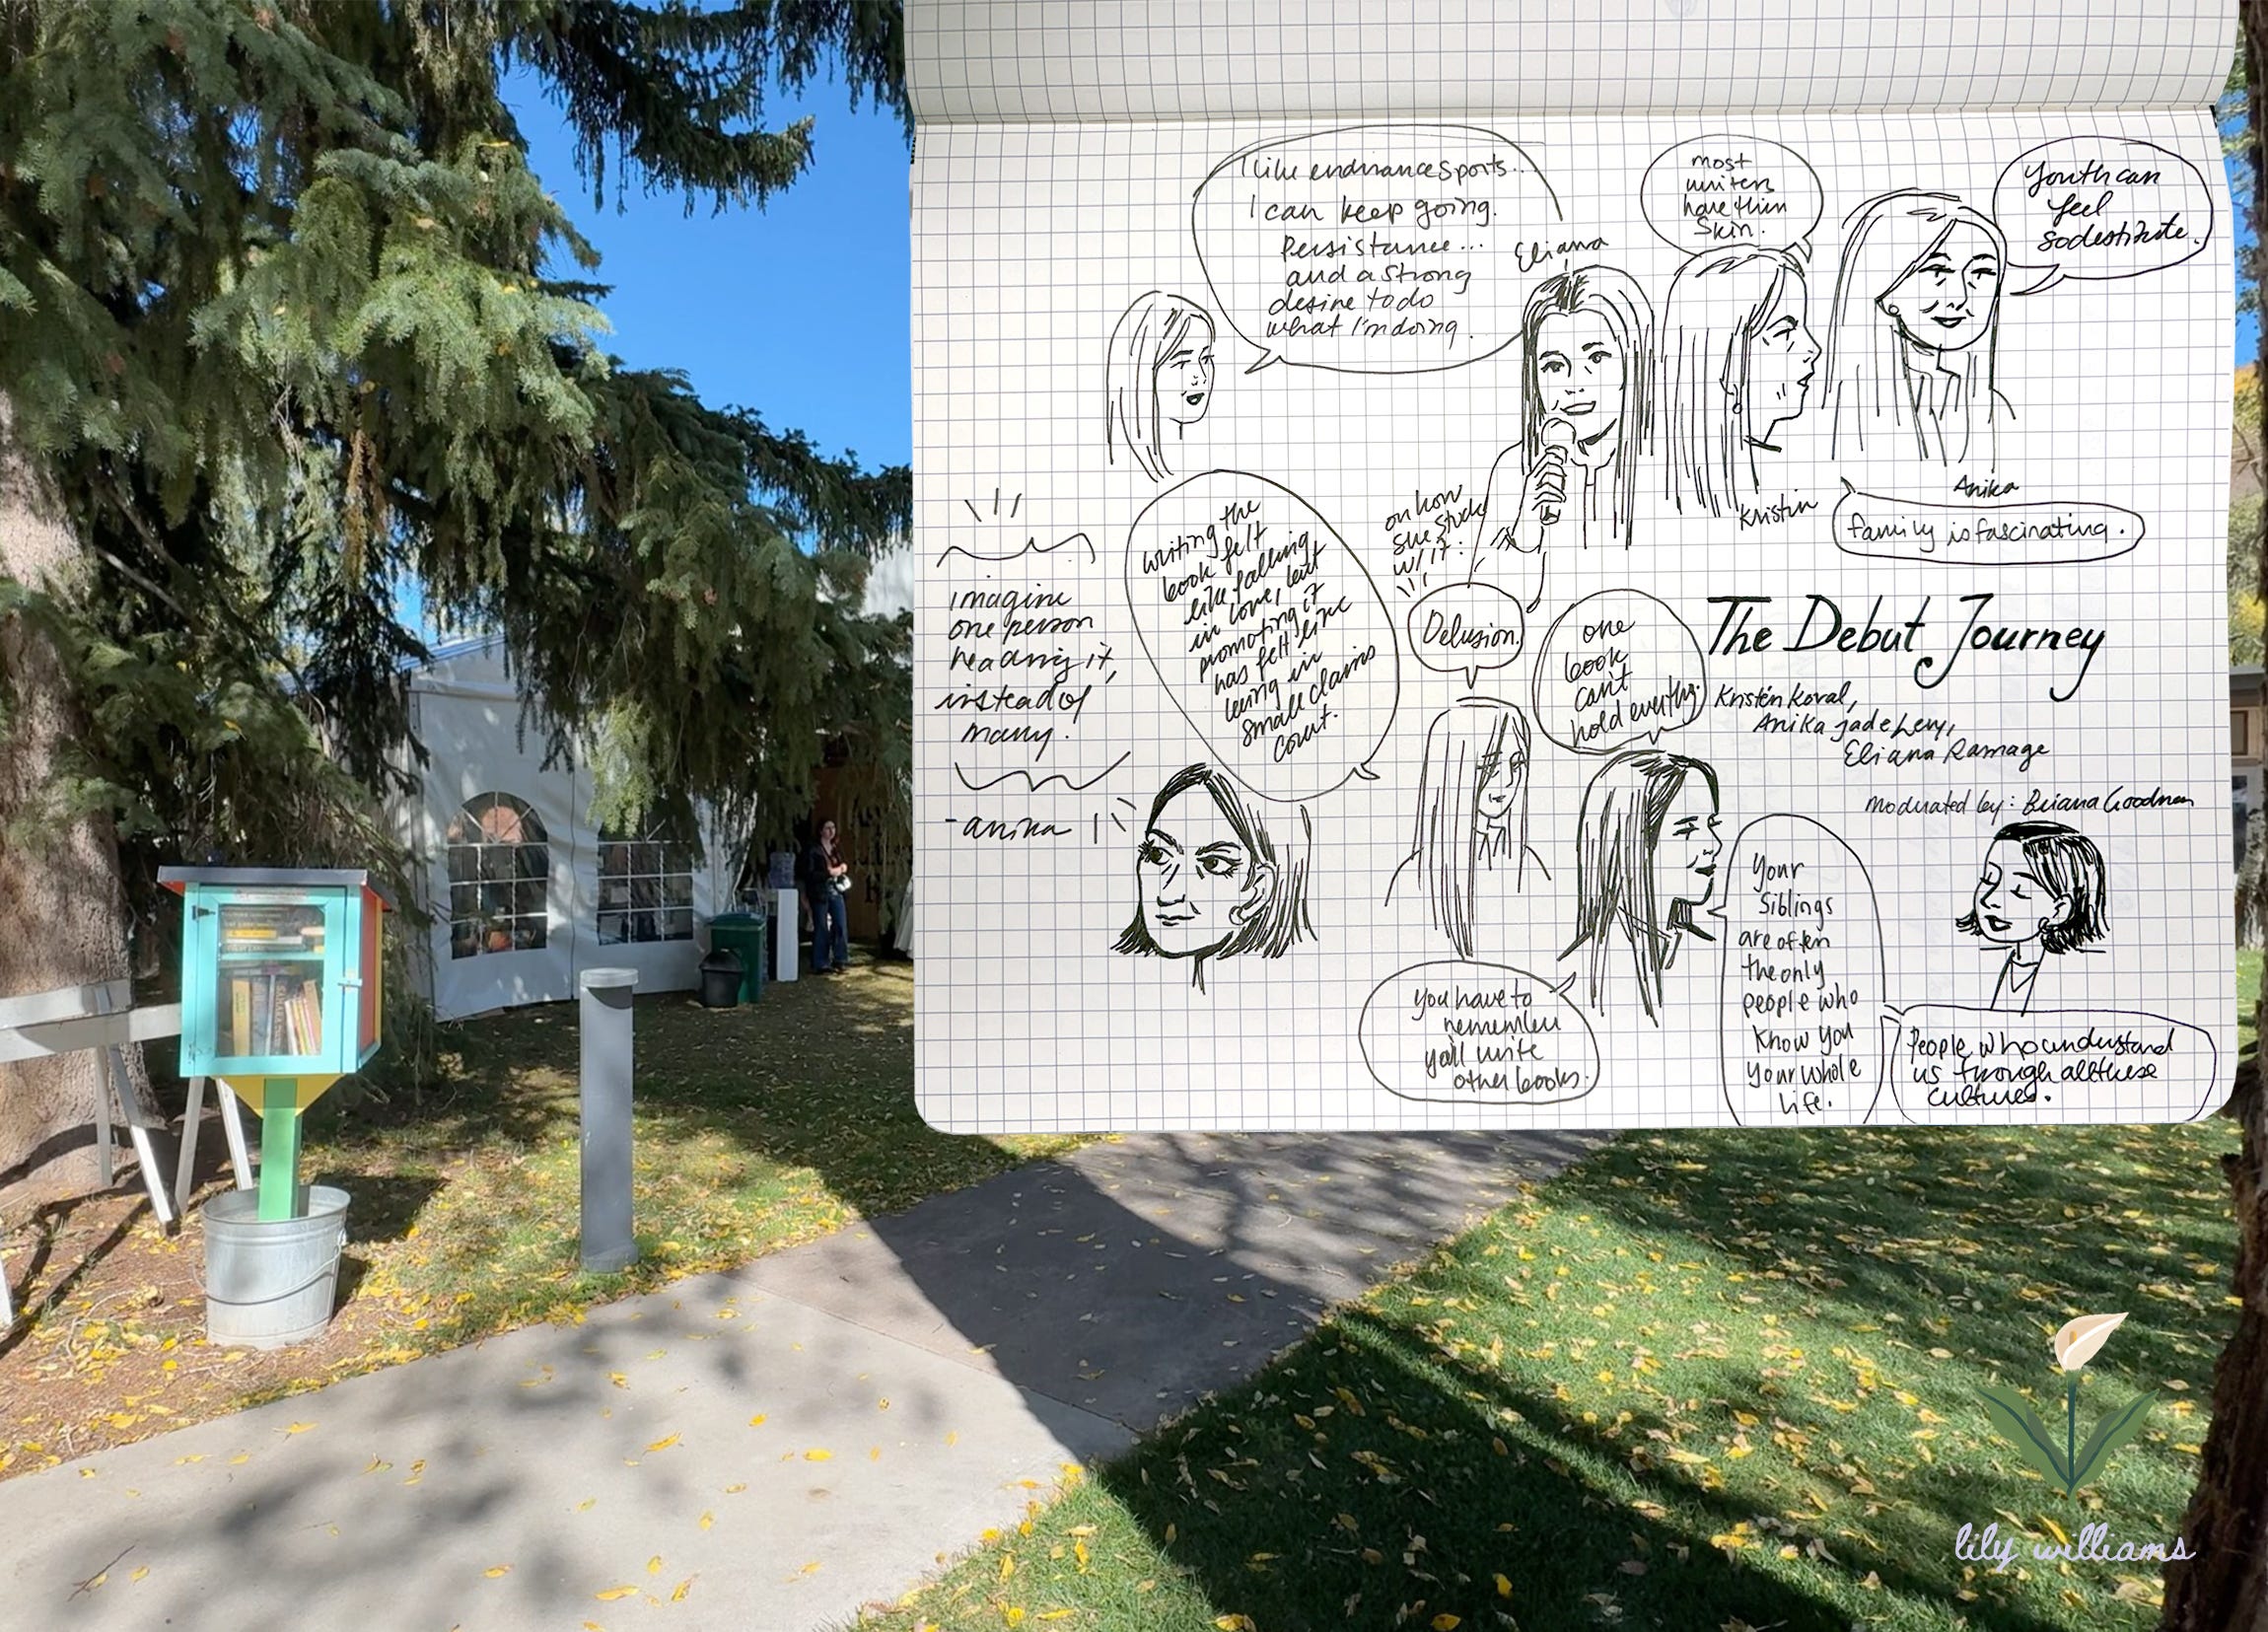 I like endurance sports...
I can keep going.
Persistance...
and a strong
desire to do
what I'm doing.
Eliana
most
writers
have thin
skin.
Youth can
feel
so destitute.
Kristin
Anika
family is fascinating.
imagine
one person
reading it,
instead of
many.
-anika
writing the
book felt
like falling
in love, but
promoting it
has felt like
being in
small claims
court.
on how
she stuck
w/ it:
Delusion.
one
book
can't
hold everythg.
The Debut Journey
Kristin Koval,
Anika Jade Levy,
Eliana Ramage
moderated by: Briana Goodman
you have to
remember
you'll write
other books.
Your
siblings
are often
the only
people who
know you
your whole
life.
People who understand
us through all these
cultures.
lily williams